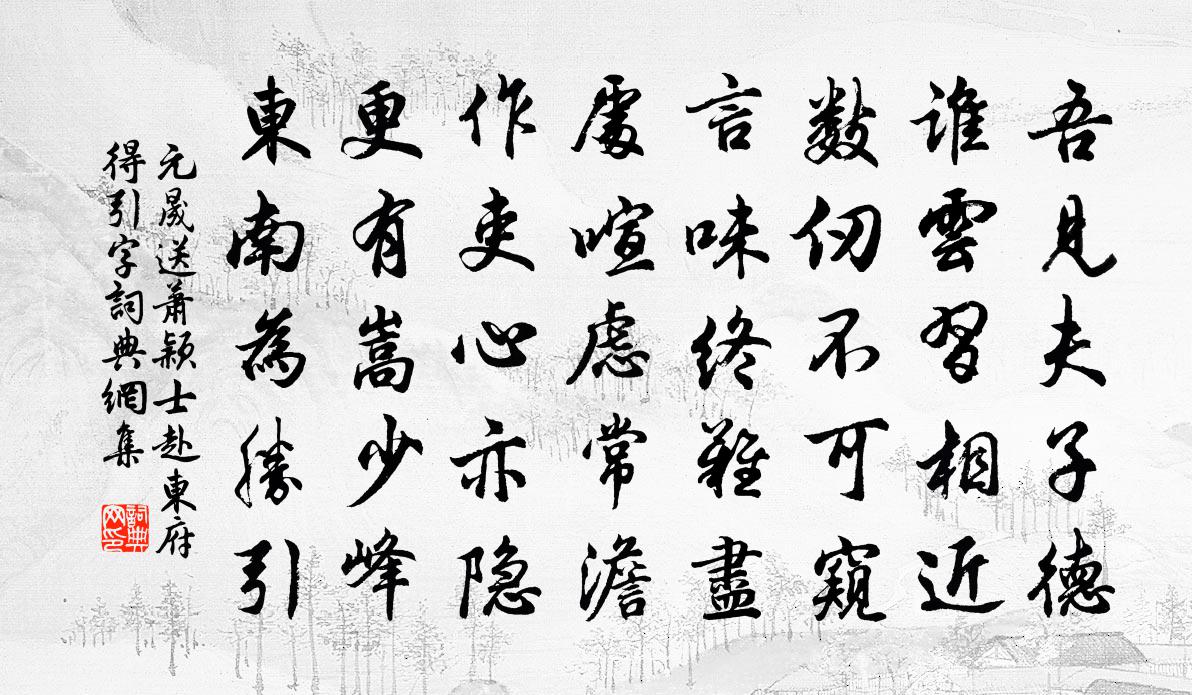 吾見夫子德
誰雲習相近
數仞不可窺
言味終難盡
處喧慮常澹
作吏心亦隐
更有嵩少峰
東南為勝引
元晟送蕭颖士赴東府
得引字詞典網集
詞典网印